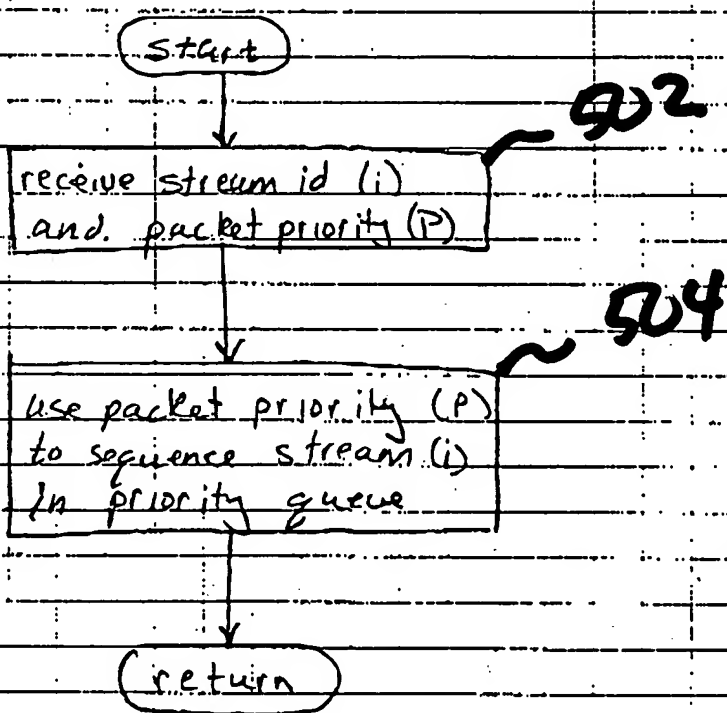 start
502
receive stream id (i)
and. packet priority (P)
504
use packet priority (P)
to sequence stream (i)
in priority queue
return